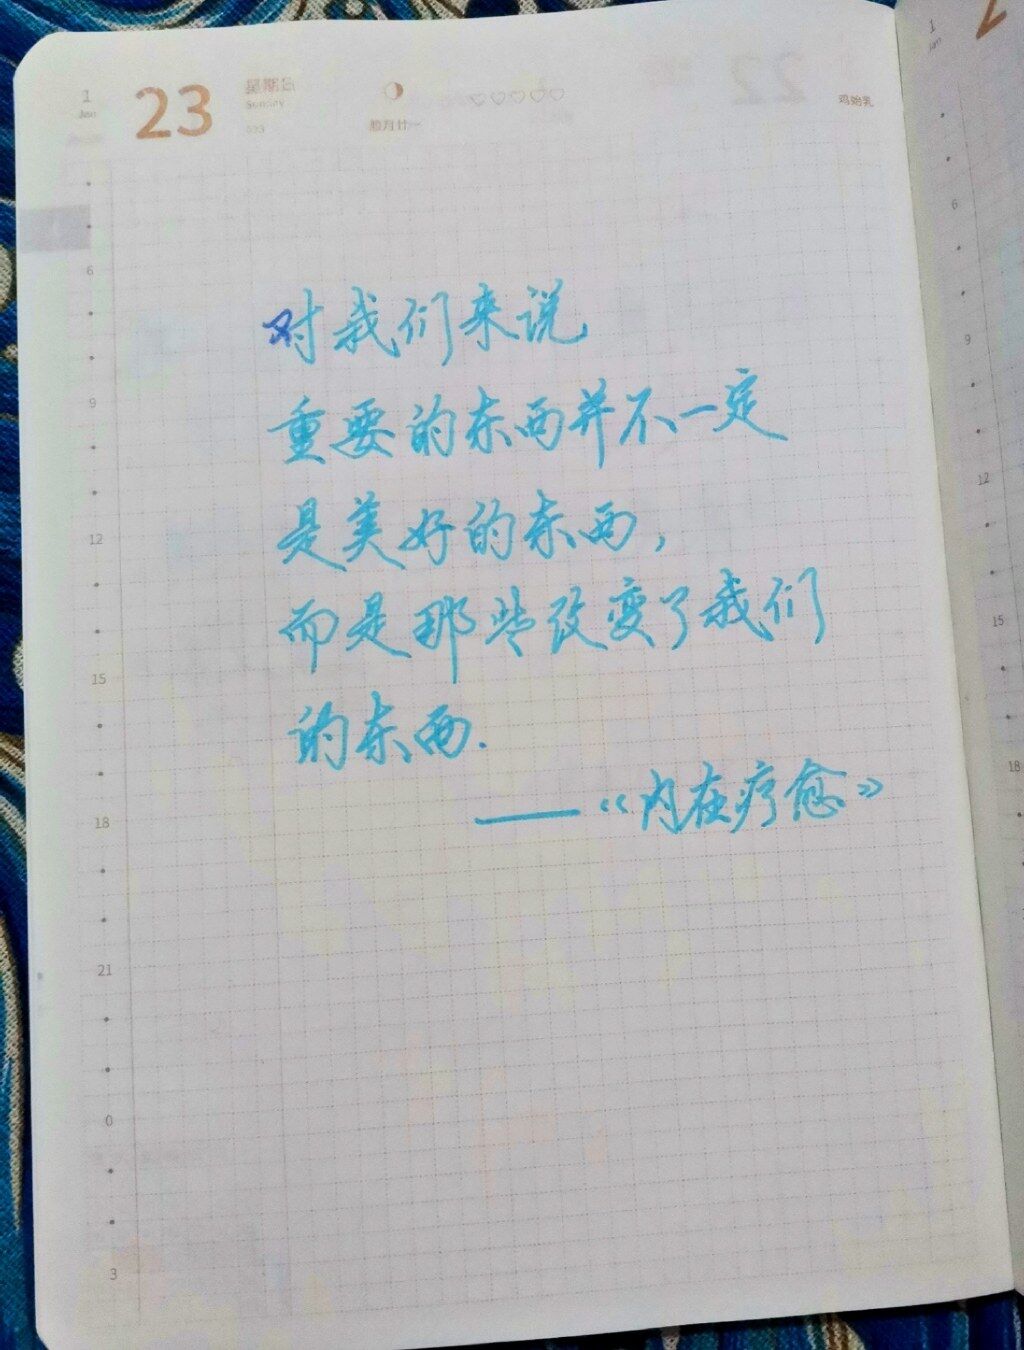 1
Jan
23
星期日
Sunday
023
腊月廿一
鸡始乳
6
9
12
15
18
21
0
3
对我们来说
重要的东西并不一定
是美好的东西,
而是那些改变了我们
的东西.
——《内在疗愈》
1
Jan
2
6
9
12
15
18